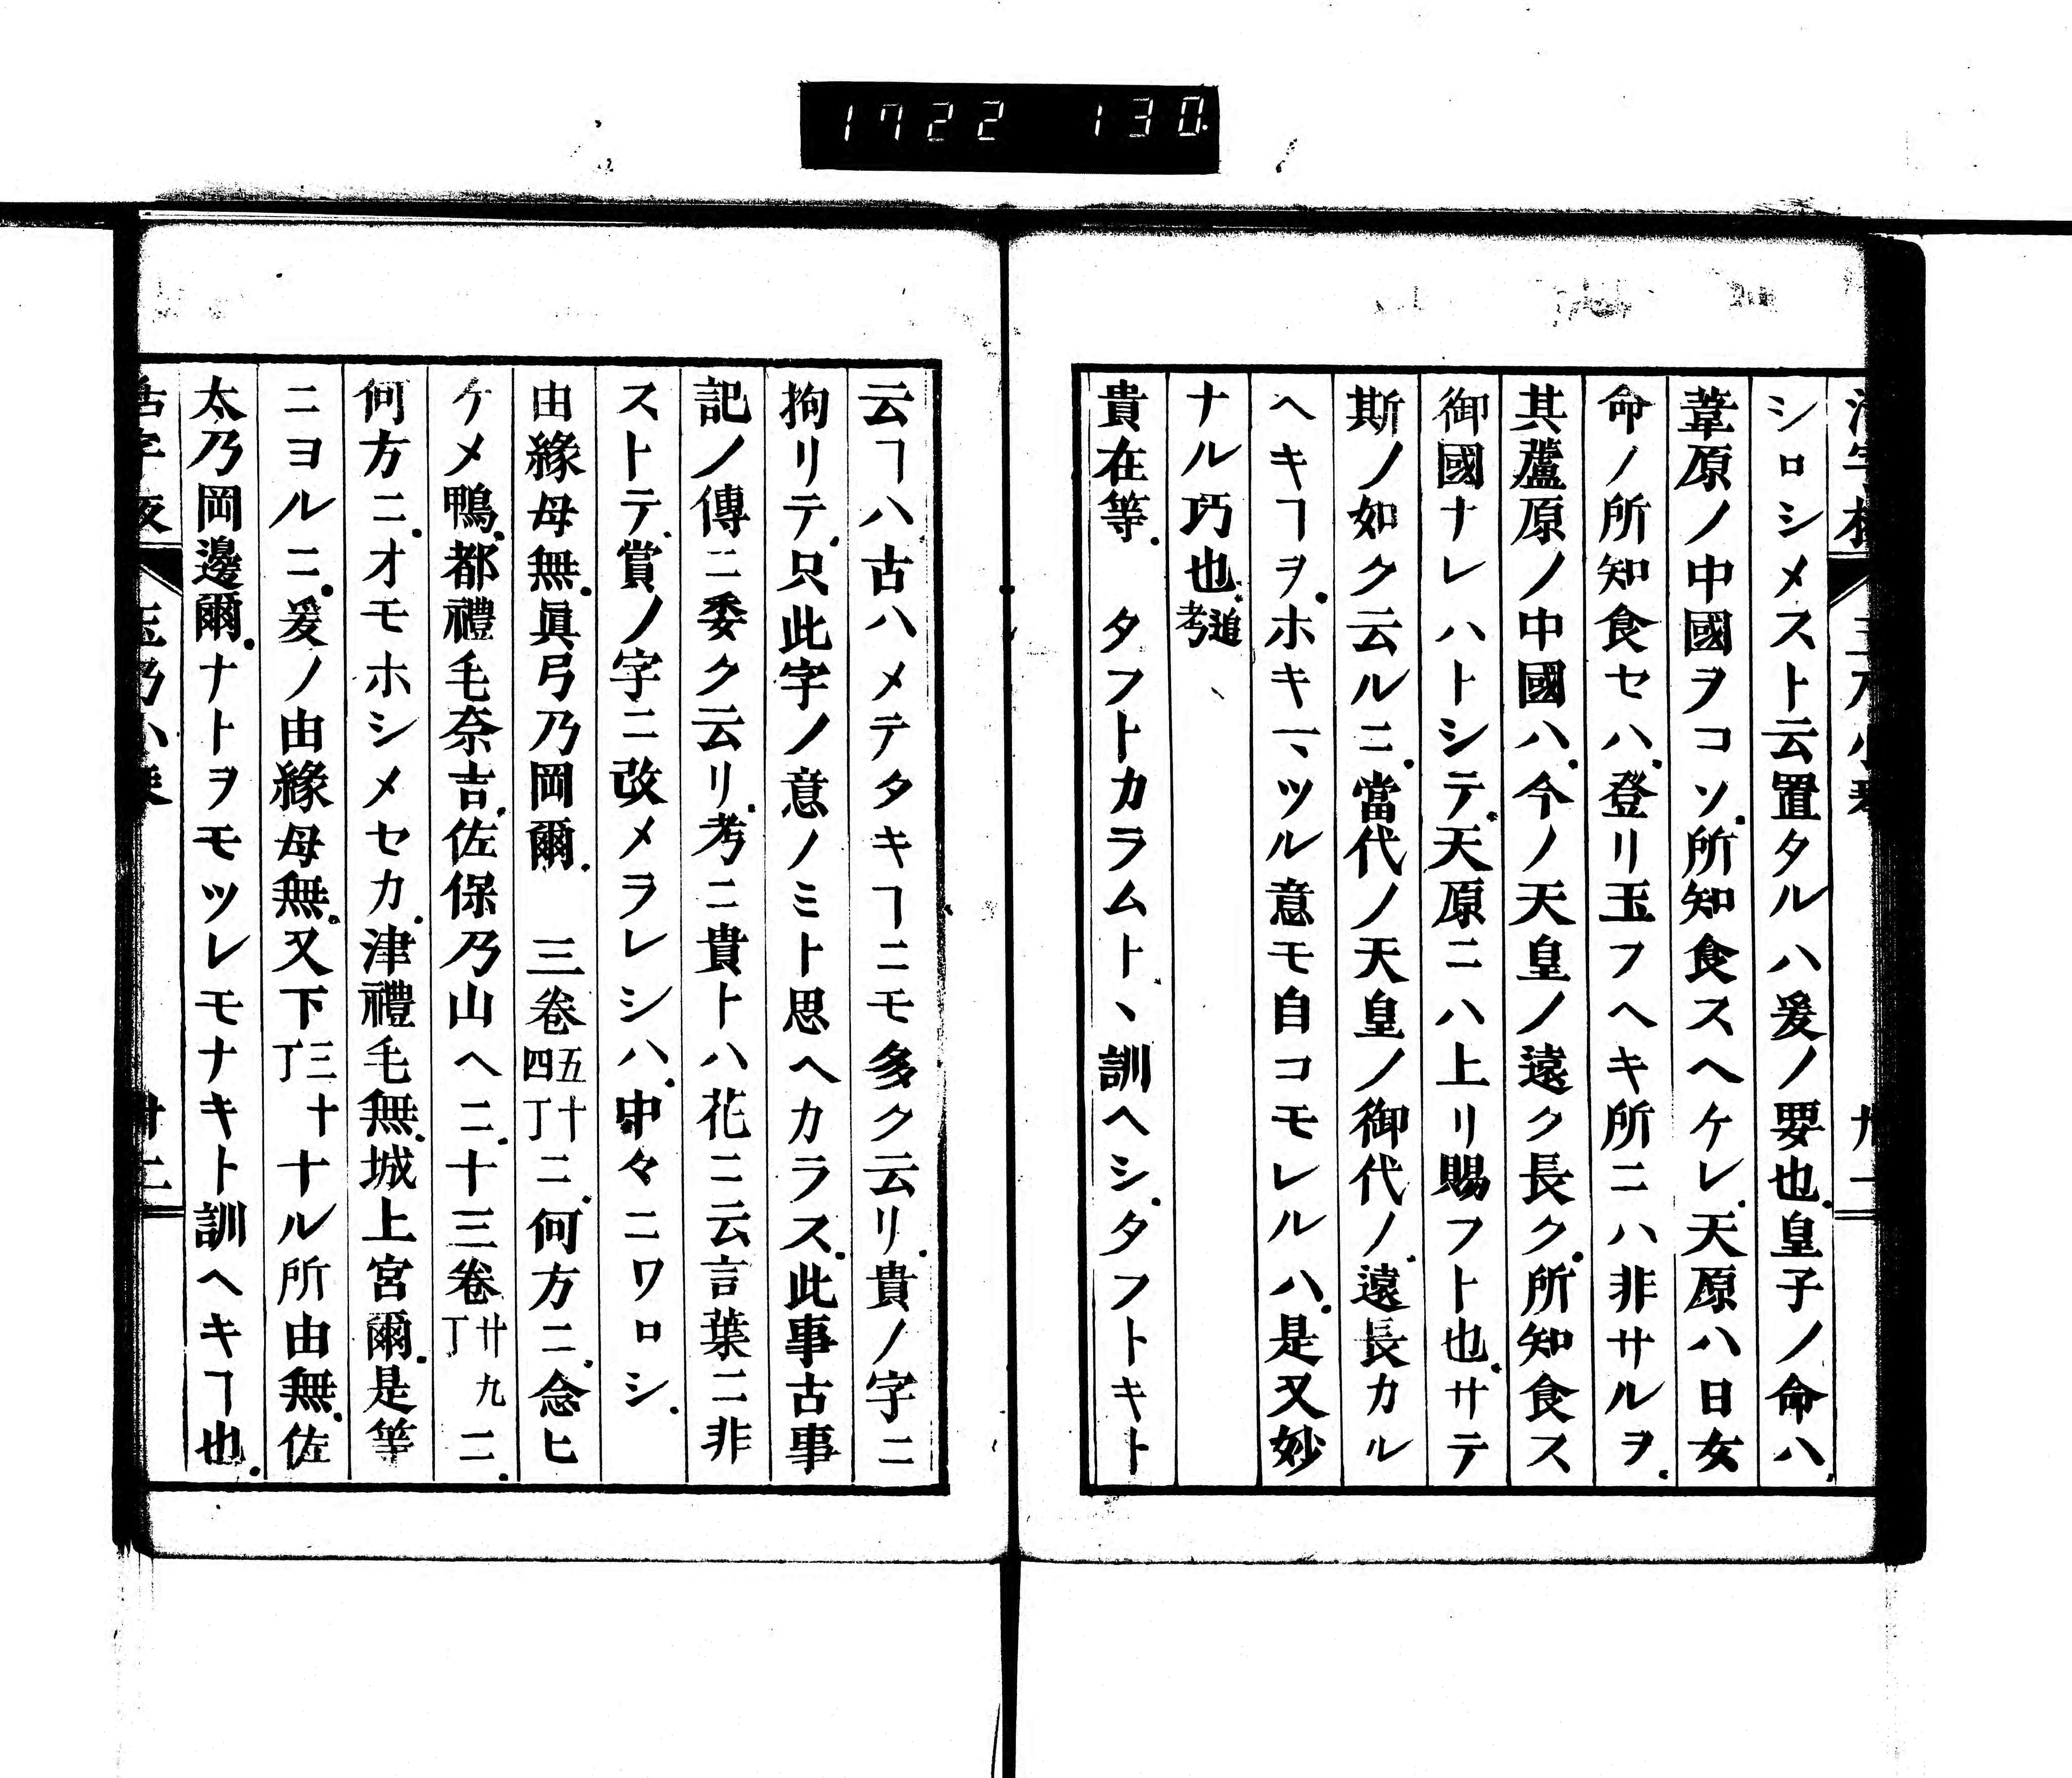 1722 130
シロシメスト云置タルハ爰ノ要也.皇子ノ命ハ.
葦原ノ中國ヲコソ.所知食スヘケレ.天原ハ日女
命ノ所知食セハ.登リ玉フヘキ所ニハ非サルヲ.
其蘆原ノ中國ハ.今ノ天皇ノ遠ク長ク.所知食ス
御國ナレハトシテ.天原ニハ上リ賜フト也.サテ
斯ノ如ク云ルニ.當代ノ天皇ノ御代ノ.遠長カル
ヘキヿヲ.ホキ一ヽツル意モ自コモレルハ.是又妙
ナル巧也.追考
貴在等. タフトカラムトヽ訓ヘシ.タフトキト
云ヿハ古ハメテタキヿニモ多ク云リ.貴ノ字ニ
拘リテ.只此字ノ意ノミト思ヘカラス.此事古事
記ノ傳ニ委ク云リ.考ニ貴トハ花ニ云言葉ニ非
ストテ.賞ノ字ニ改メラレシハ.中々ニワロシ.
由緣母無.眞弓乃岡爾. 三卷五十四丁ニ.何方ニ.念ヒ
ケメ鴨.都禮毛奈吉.佐保乃山ヘニ.十三卷廿九丁ニ.
何方ニ.オモホシメセカ.津禮毛無.城上宮爾.是等
ニヨルニ.爰ノ由緣母無.又下三十丁ナル所由無.佐
太乃岡邊爾.ナトヲモツレモナキト訓ヘキヿ也.